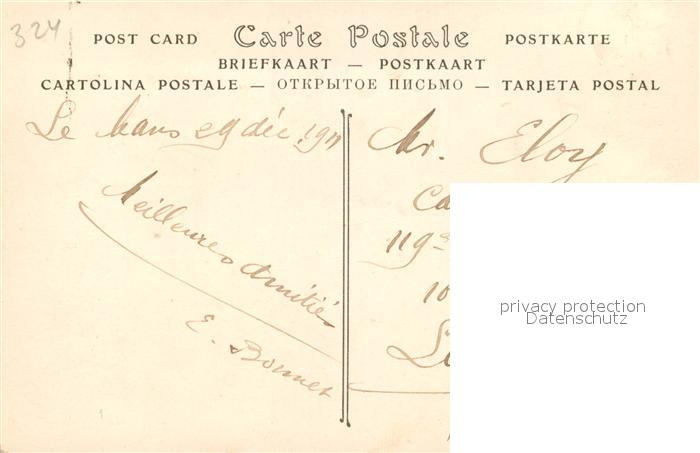 324
POST CARD Carte Postale POSTKARTE
BRIEFKAART — POSTKAART
CARTOLINA POSTALE — ОТКРЫТОЕ ПИСЬМО — TARJETA POSTAL
Le Mans 29 déc. 1911
Meilleures Amitiés
E. Bonnet
Mr. Eloy
Ca
119e
10
L
privacy protection
Datenschutz